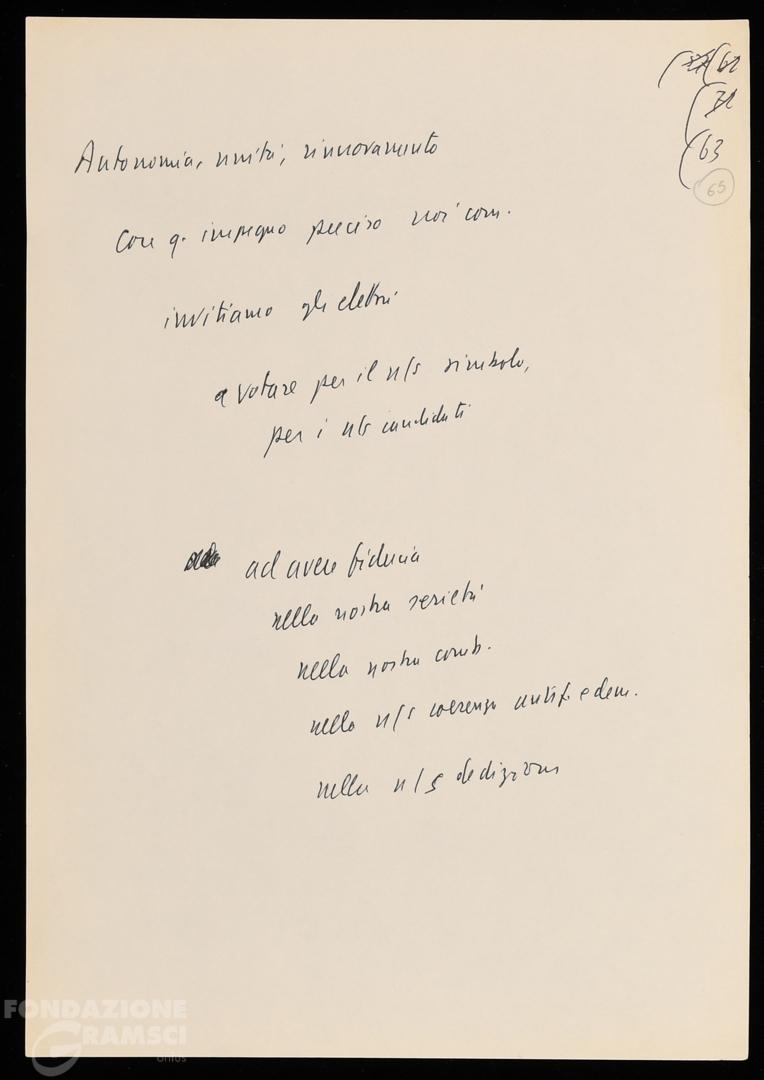 (62
(71
(63
65
Autonomia, unità, rinnovamento
Con q. impegno preciso noi com.
invitiamo gli elettori
a votare per il n/s simbolo,
per i n/s candidati
ad avere fiducia
nella nostra serietà
nella nostra comb.
nella n/s coerenza antif. e dem.
nella n/s dedizione
FONDAZIONE
GRAMSCI
onlus